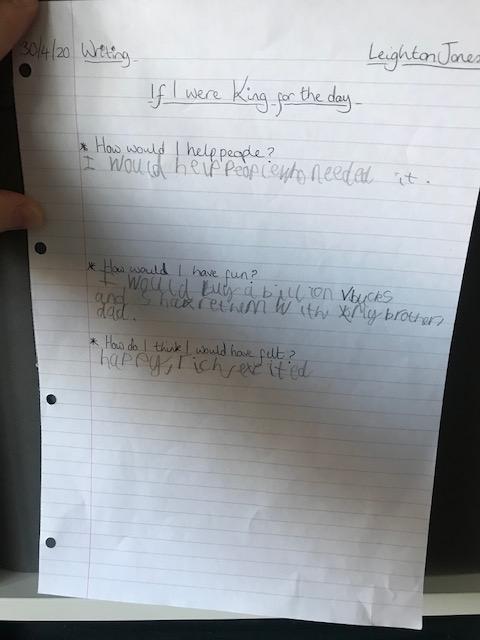 30/4/20 Writing Leighton Jones
If I were King for the day
* How would I help people?
I would help people who needed it.
* How would I have fun?
I would buy a billion Vbucks
and share them with my brother,
dad.
* How do I think I would have felt?
happy, rich, excited